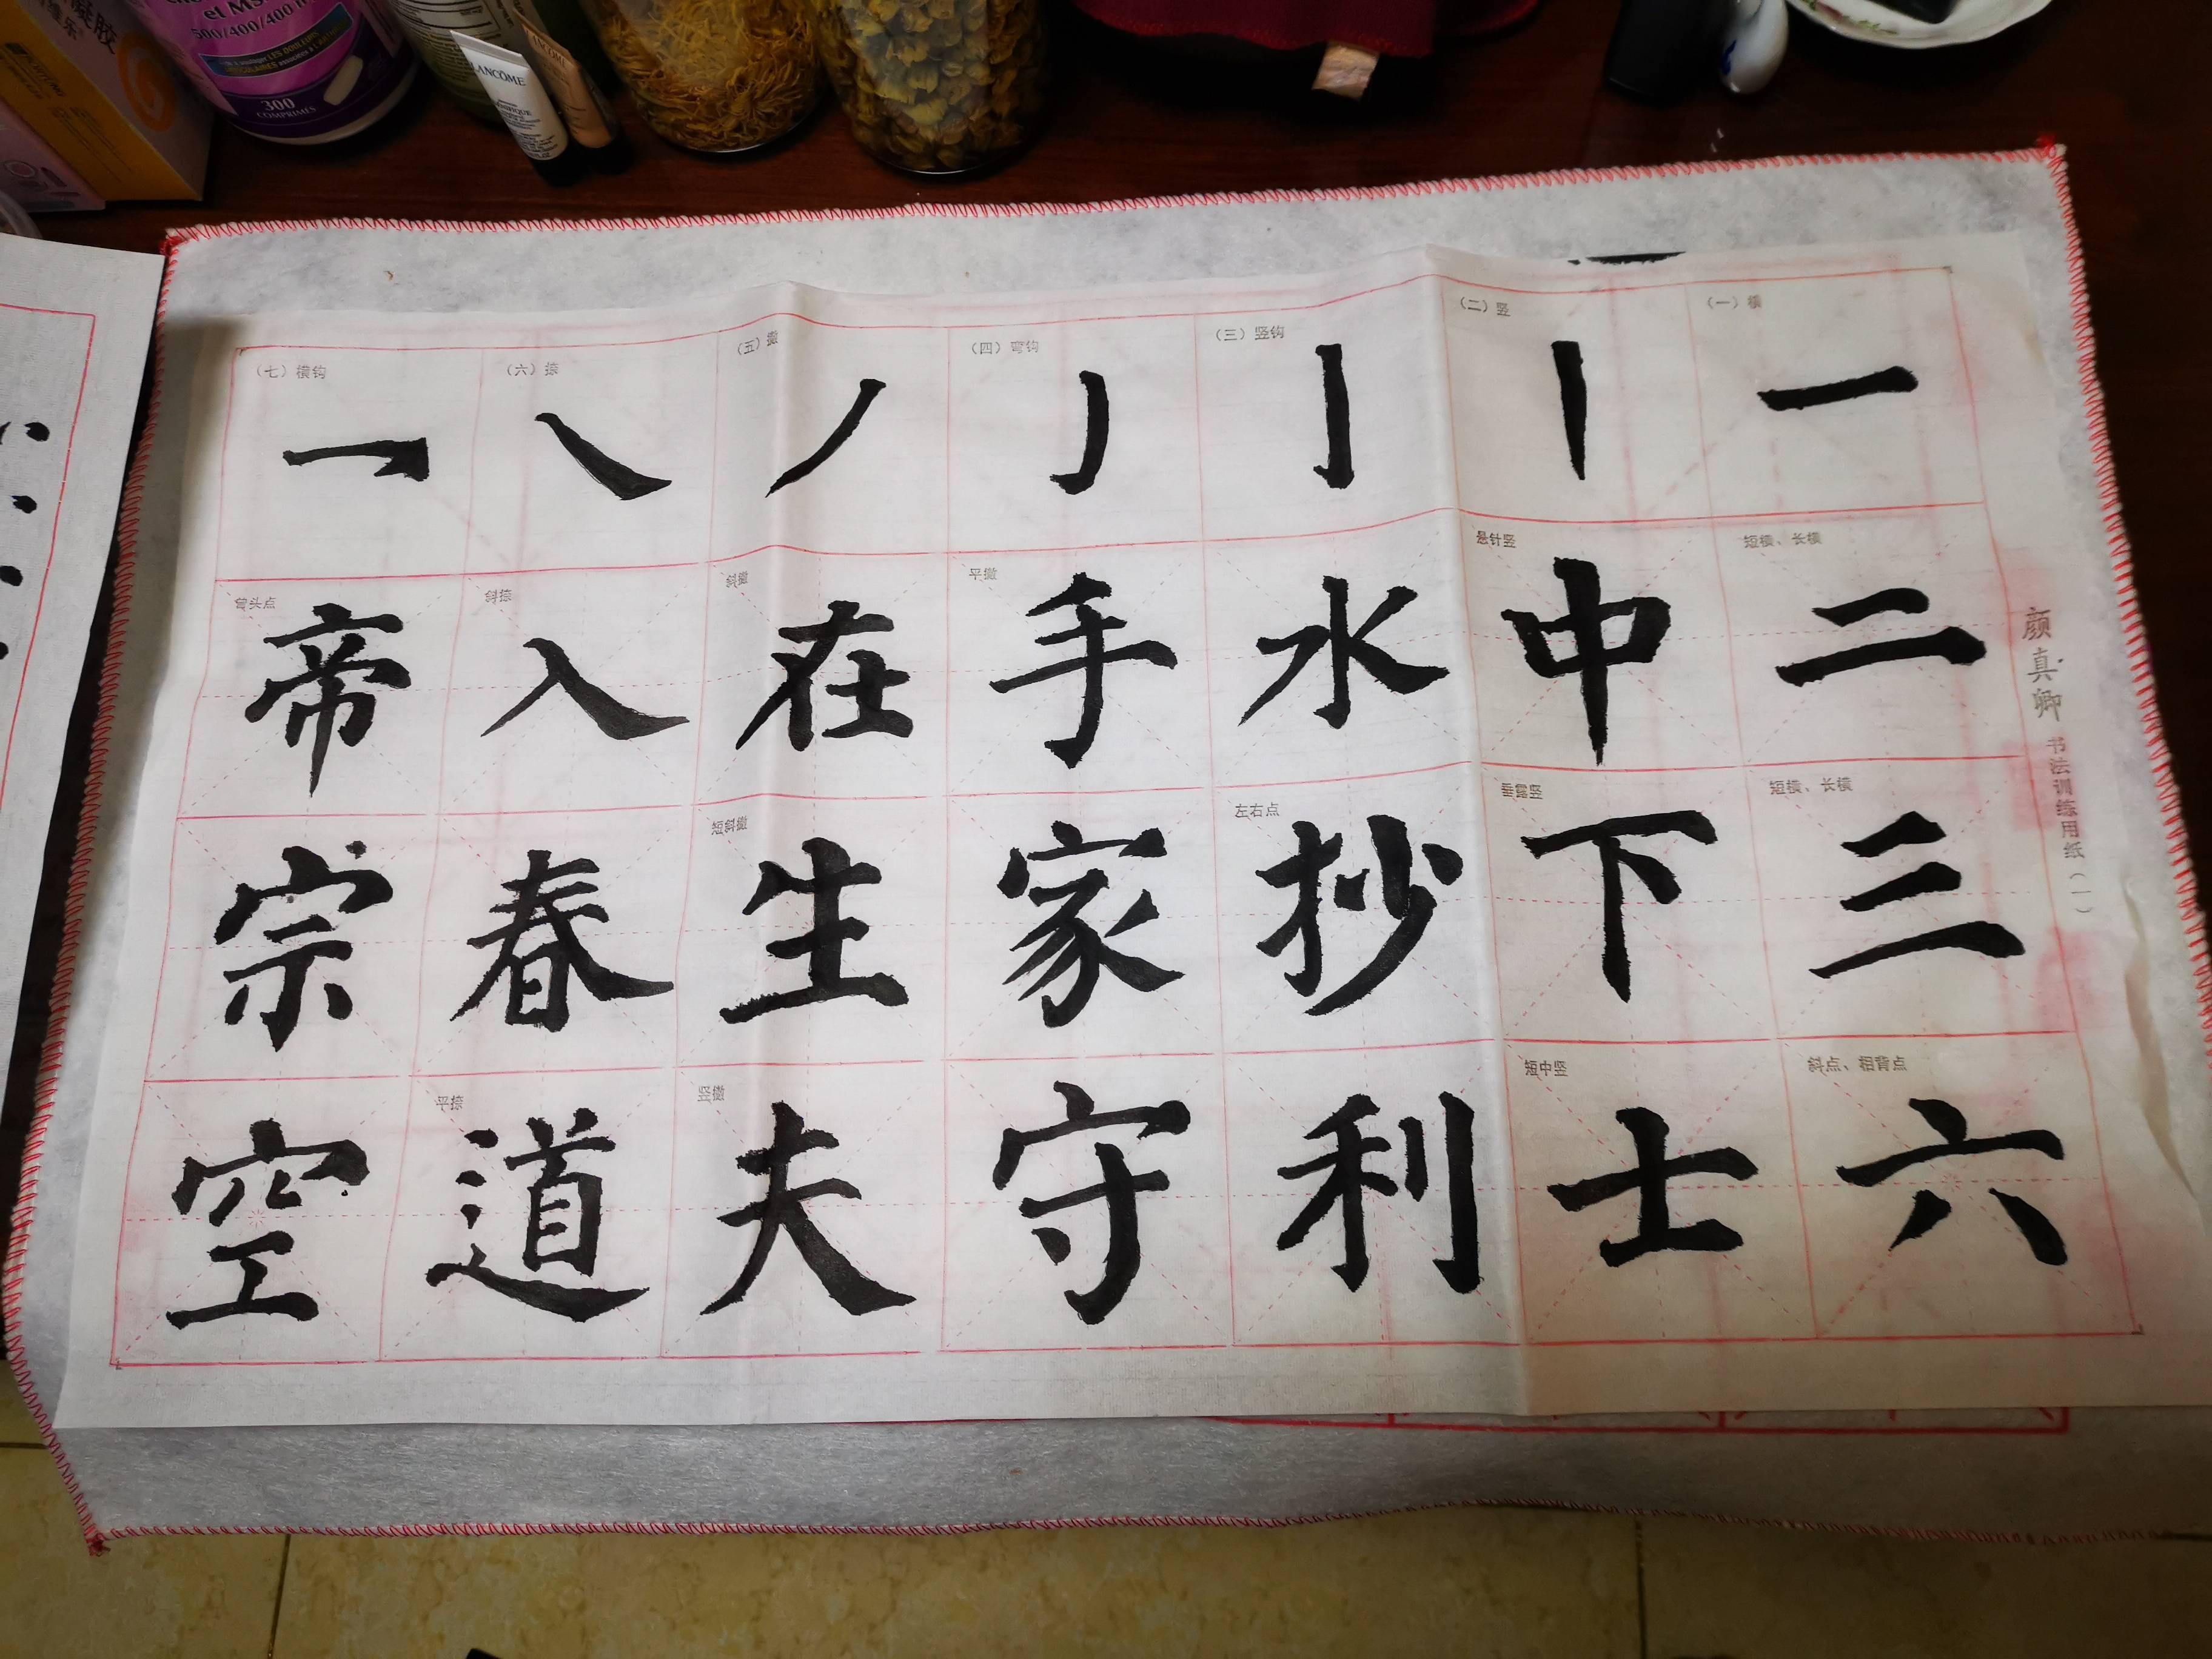 et MS
500/400/400
300
COMPRIMÉS
LANCÔME
颜真卿 书法训练用纸（一）
（一）横
一
短横、长横
二
短横、长横
三
斜点、相背点
六
（二）竖
丨
悬针竖
中
垂露竖
下
短中竖
士
（三）竖钩
亅
水
左右点
抄
利
（四）弯钩
平撇
手
家
守
（五）撇
丿
斜撇
在
短斜撇
生
竖撇
夫
（六）捺
㇏
斜捺
入
春
平捺
道
（七）横钩
乛
帝
宗
空